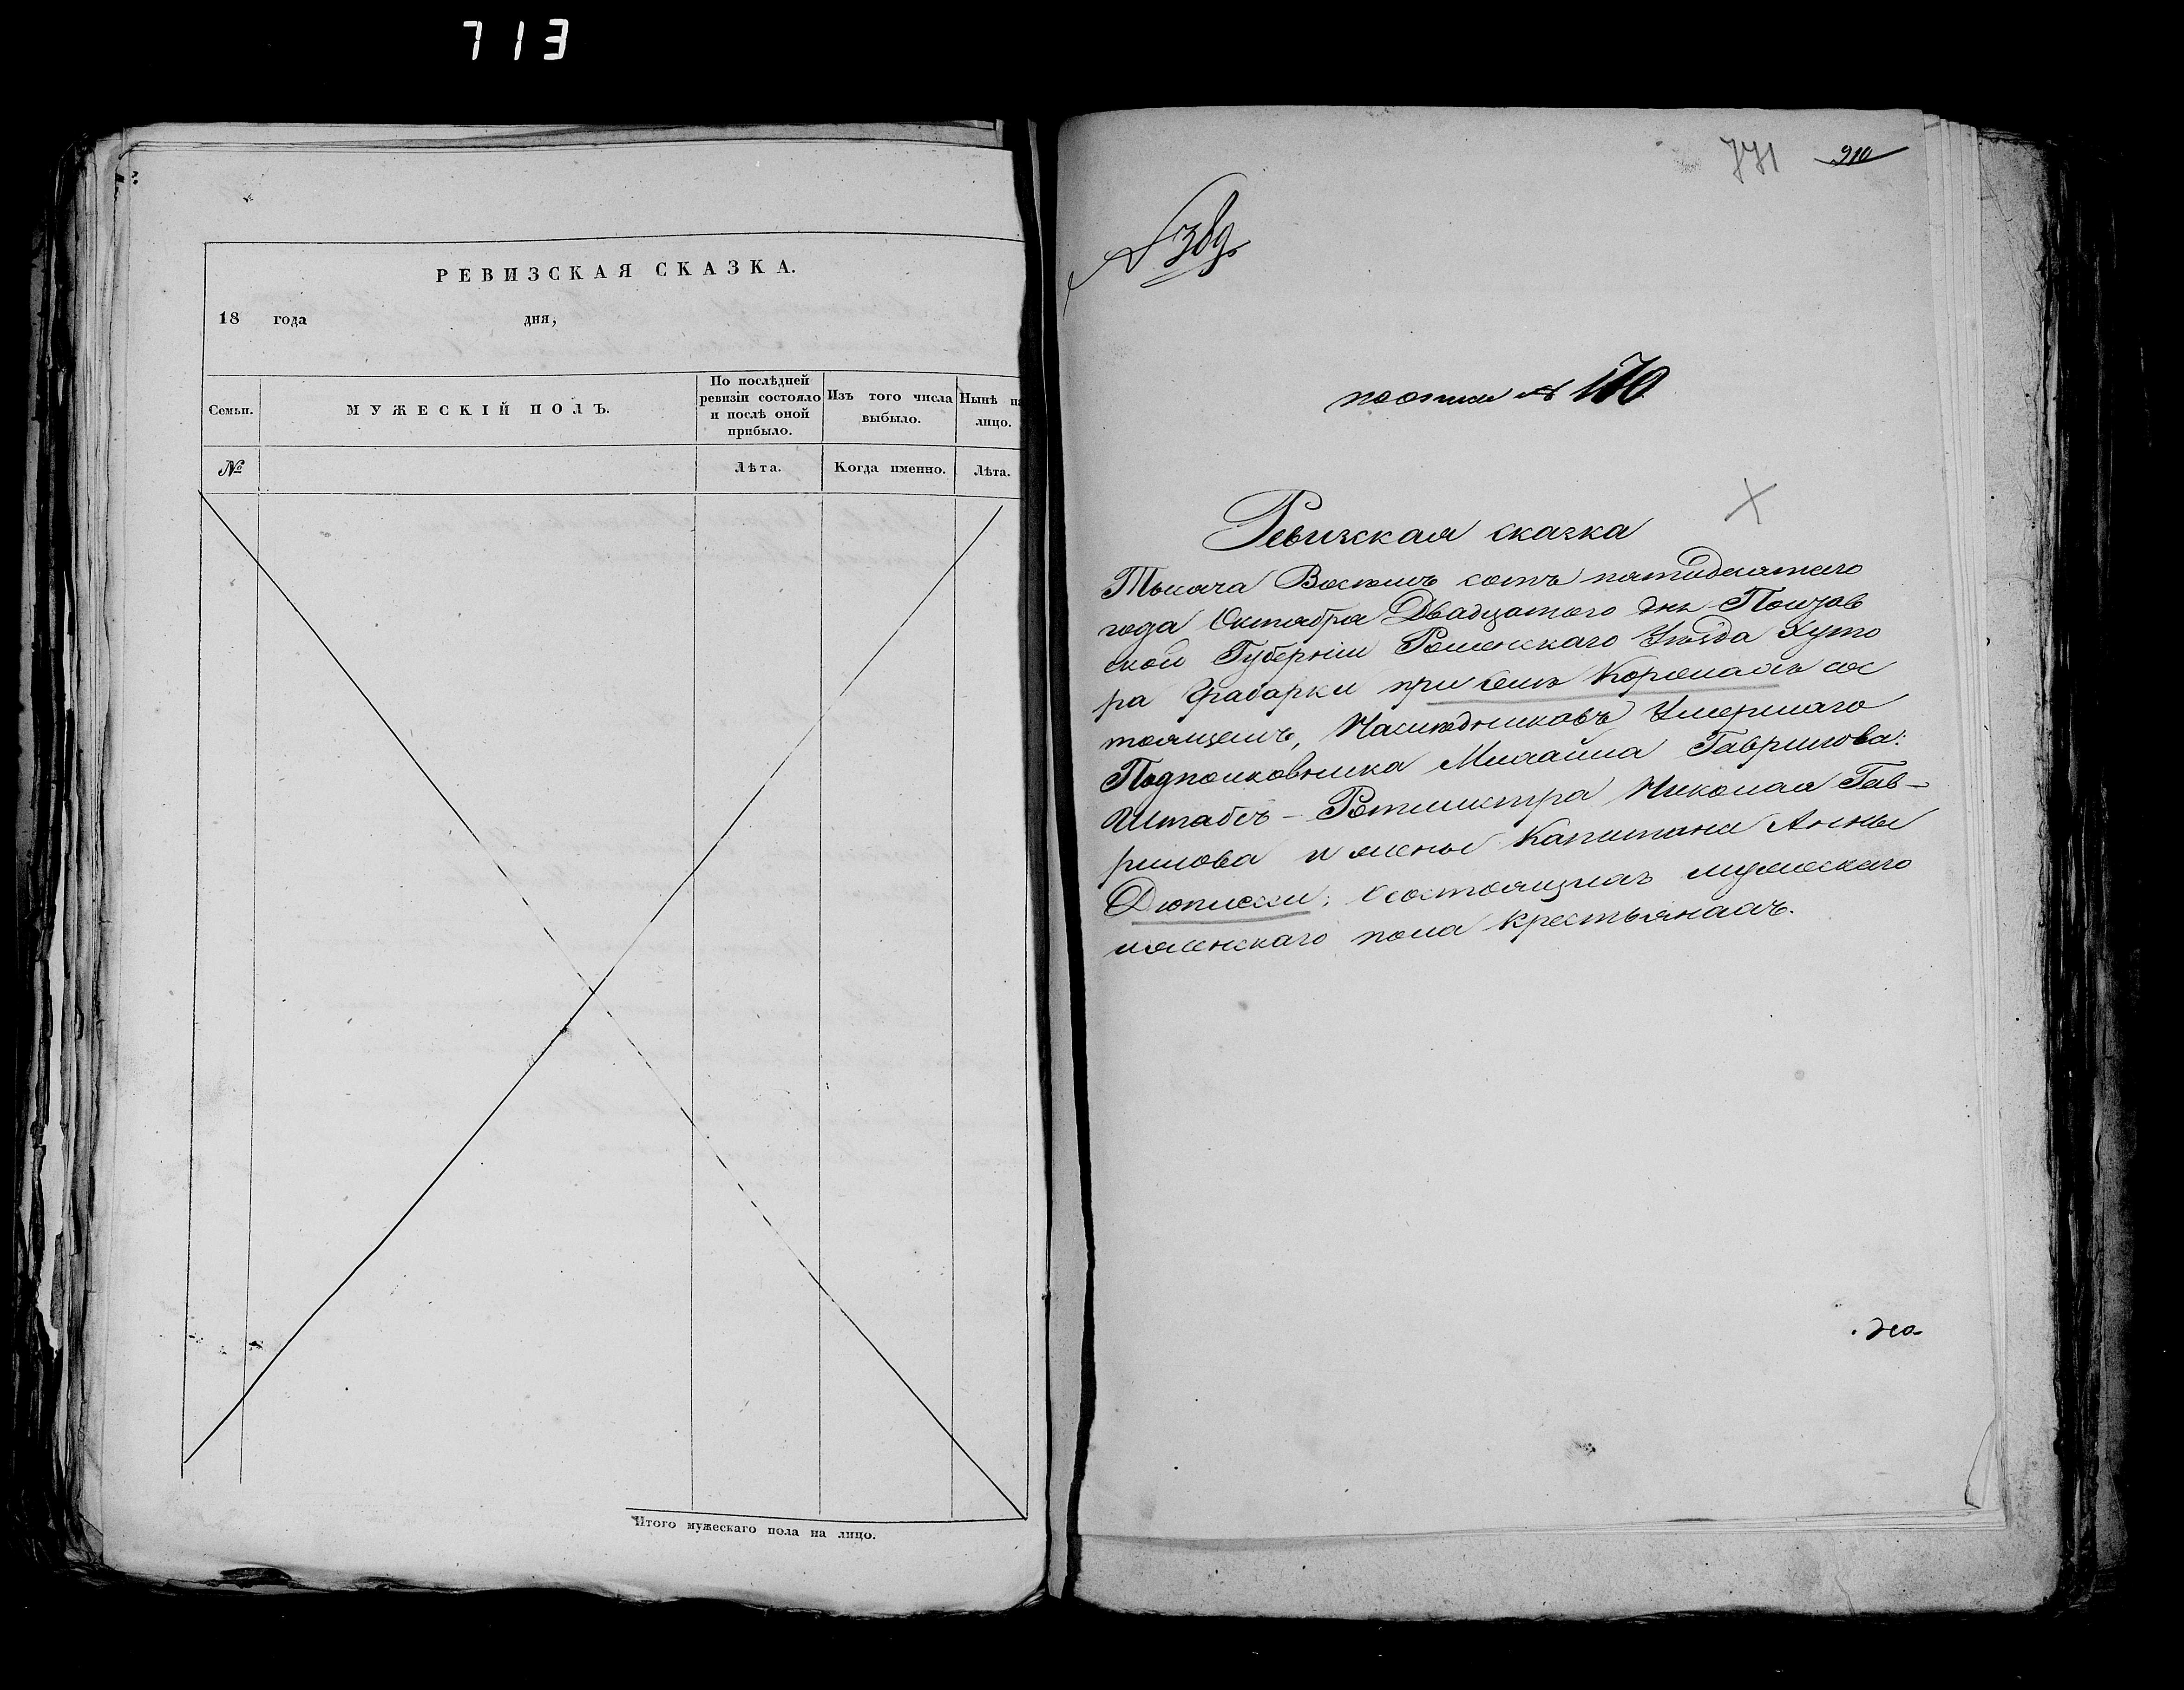 713
РЕВИЗСКАЯ СКАЗКА.
18 года дня,
Семьи.
МУЖЕСКІЙ ПОЛЪ.
По послѣдней
ревизіи состояло
и послѣ оной
прибыло.
Изъ того числа
выбыло.
Нынѣ на
лицо.
№
Лѣта.
Когда именно.
Лѣта.
Итого мужескаго пола на лицо.
771 910
№ 389
по описи № 170
Ревизская сказка
Тысяча Восемъ сотъ пятидесятаго
года Октября Двадцатого дня Полтав
ской Губерніи Роменскаго Уѣзда Хуто
ра Грабарки при селѣ Короваахъ сос
тоящемъ, Наслѣдниковъ Умершаго
Подполковника Михайла Гаврилова:
Штабсъ-Ротмистра Николая Гав-
рилова и жены Капитана Анны
состоящихъ мужескаго
иженскаго пола крестьянахъ.